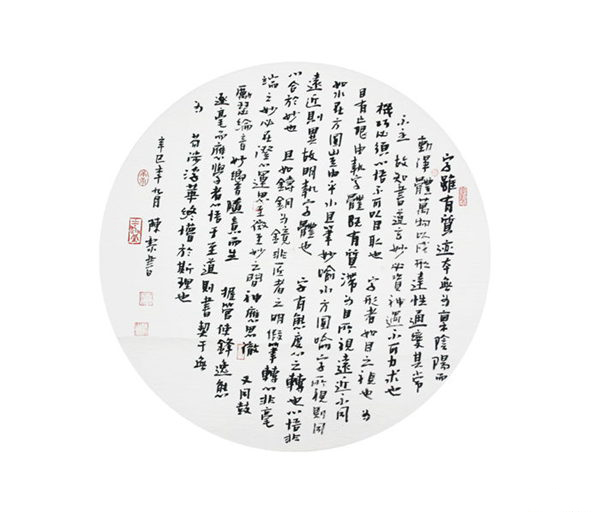 字雖有質迹本無為稟陰陽而
動淨體萬物以成形達性通變其常
不主 故知書道玄妙必資神遇不可力求也
機巧必須心悟不可以目取也 字形者如目之視也 為
目有止限由執字體既有質滯為目所視遠近不同
如水在方圓豈由乎水且筆妙喻水方圓喻字所視則同
遠近則異故明執字體也 字有態度心之轉也心悟非
心合於妙也 且如鑄銅為鏡非匠者之明假筆轉心非毫
端之妙必在澄心運思至微至妙之間神應思徹 又同鼓
瑟綸音妙響隨意而生 握管使鋒逸態
逐毫而應學者心悟于至道則書契于無
為 苟涉浮華終懵於斯理也
辛巳年九月陳書